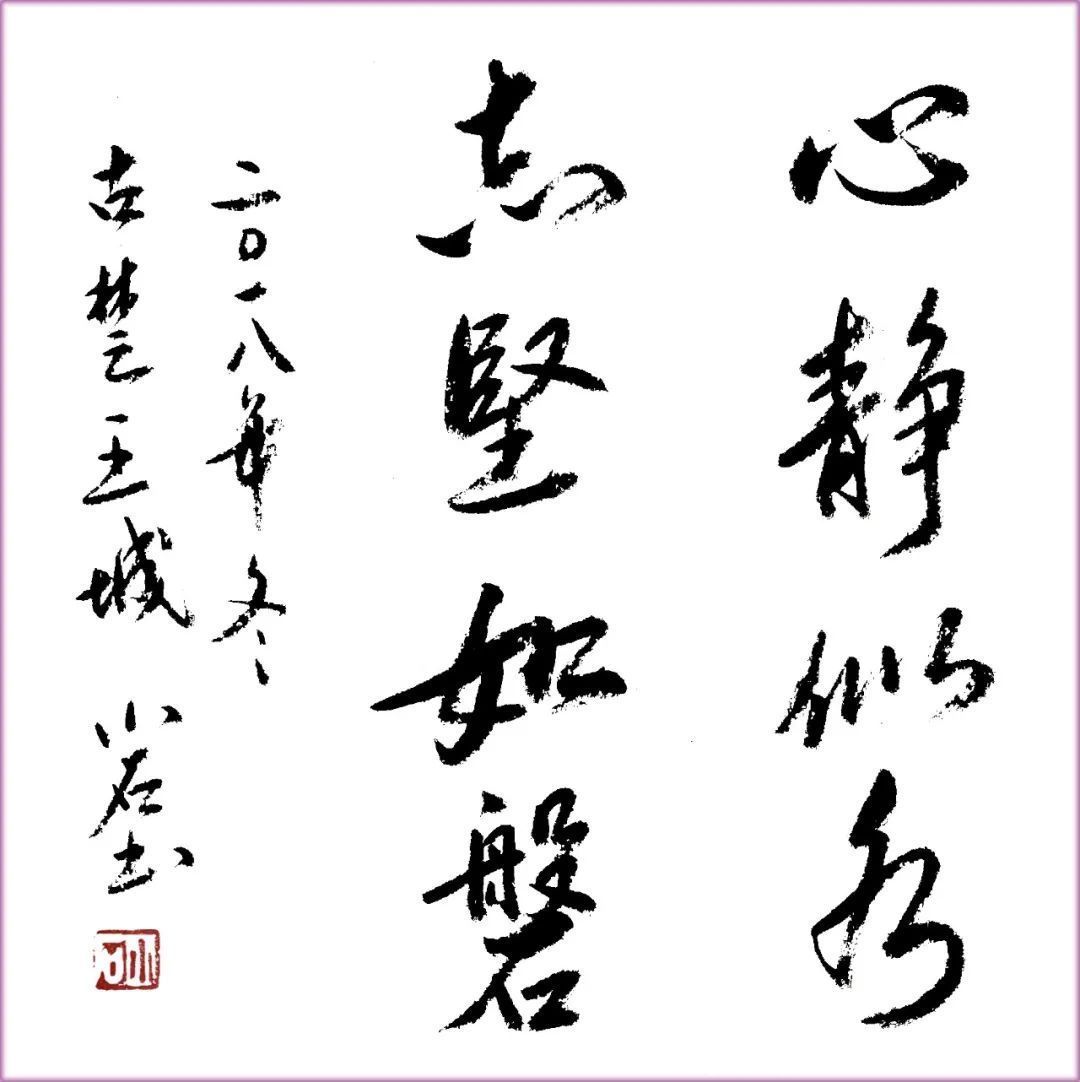 心静似水
志坚如磐
二〇一八年冬
古楚王城 小石书
小石